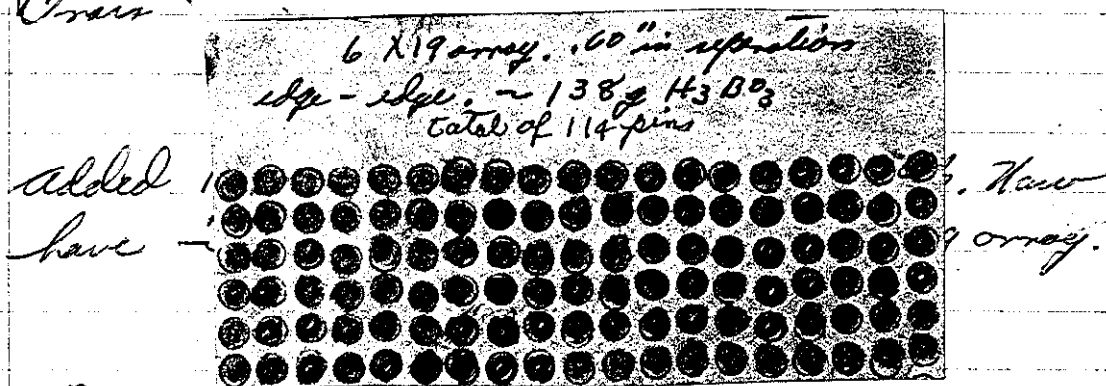 6 X 19 array. .60" in separation
edge - edge. ~ 138 g H3BO3
total of 114 pins
added
have ~ array.